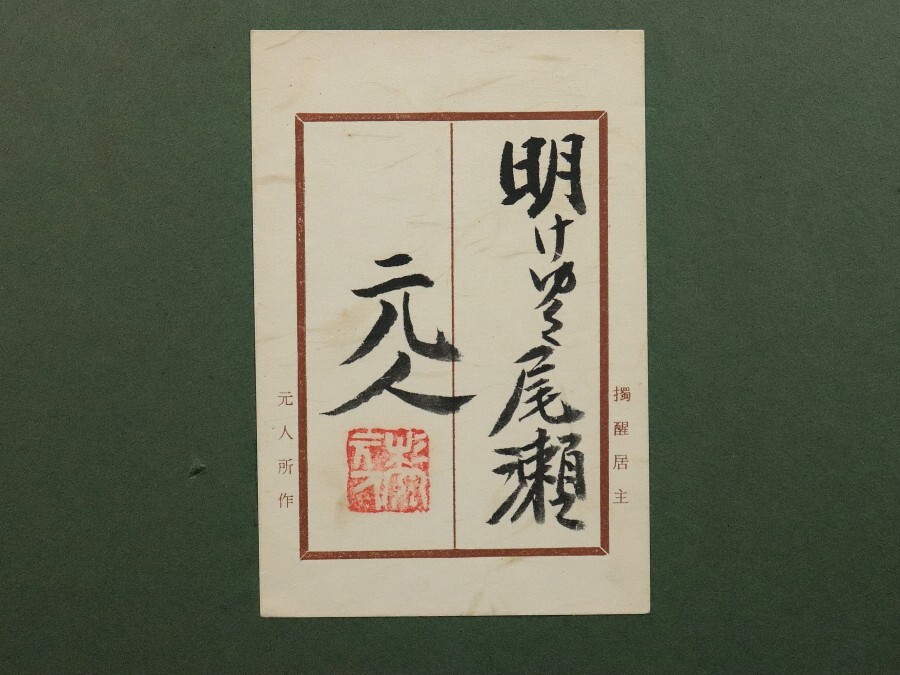 明けゆく尾瀬
元人
獨醒居主
元人所作